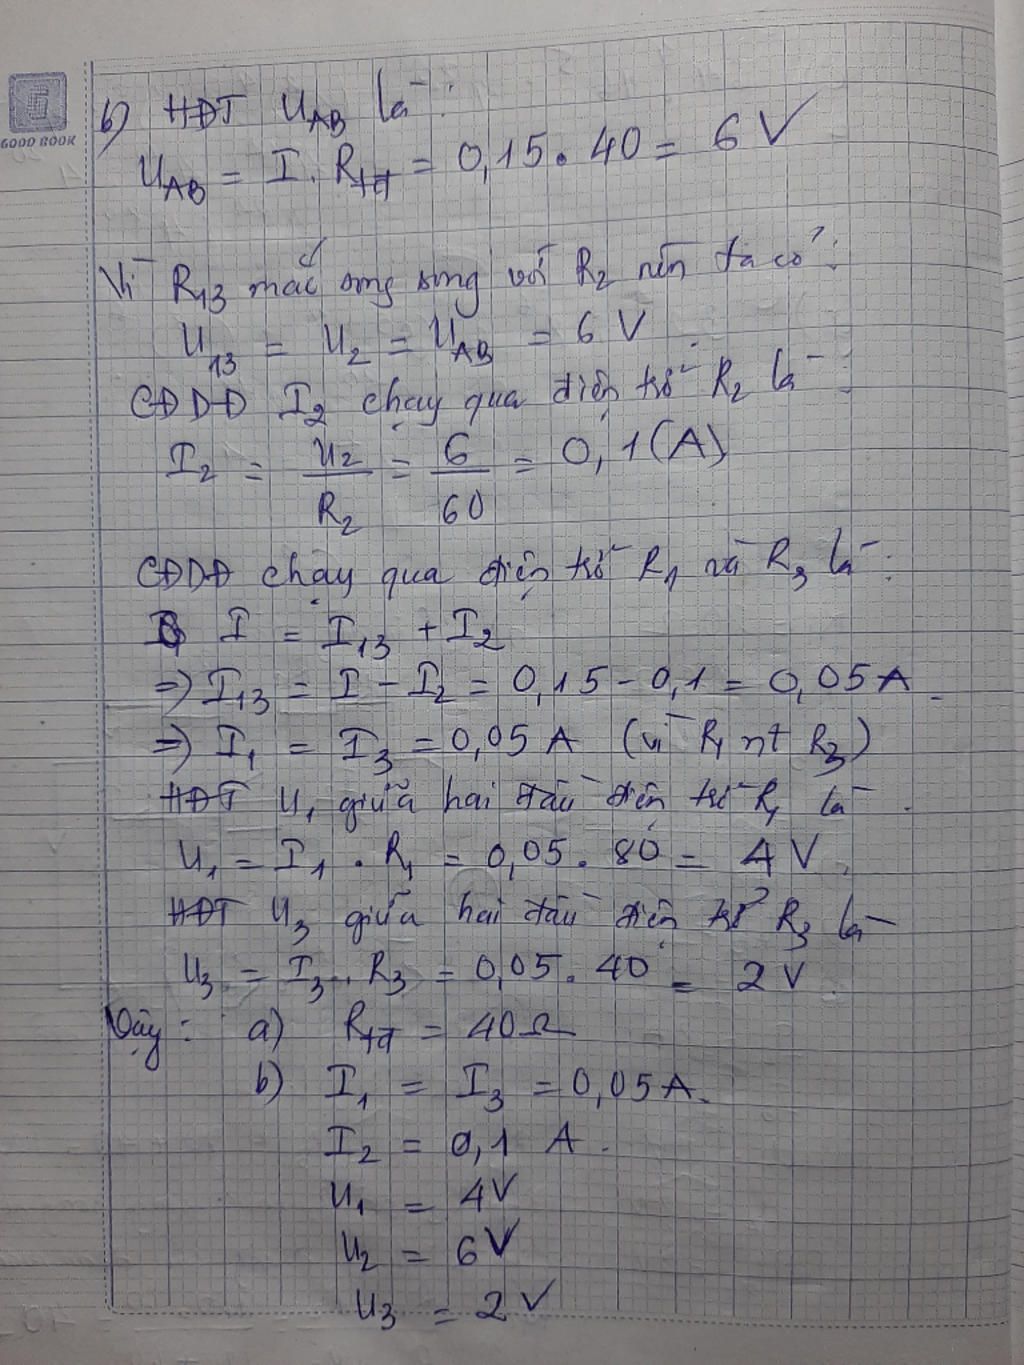 GOOD BOOK
b) HĐT U_AB là :
U_AB = I . R_tđ = 0,15 . 40 = 6 V
Vì R_13 mắc song song với R_2 nên ta có :
U_13 = U_2 = U_AB = 6 V .
CĐDĐ I_2 chạy qua điện trở R_2 là :
I_2 = U_2/R_2 = 6/60 = 0,1 (A)
CĐDĐ chạy qua điện trở R_1 và R_3 là :
I = I_13 + I_2
=> I_13 = I - I_2 = 0,15 - 0,1 = 0,05 A .
=> I_1 = I_3 = 0,05 A (vì R_1 nt R_3)
HĐT U_1 giữa hai đầu điện trở R_1 là .
U_1 = I_1 . R_1 = 0,05 . 80 = 4 V .
HĐT U_3 giữa hai đầu điện trở R_3 là
U_3 = I_3 . R_3 = 0,05 . 40 = 2 V .
Vậy : a) R_tđ = 40 Ω
b) I_1 = I_3 = 0,05 A .
I_2 = 0,1 A .
U_1 = 4 V
U_2 = 6 V
U_3 = 2 V